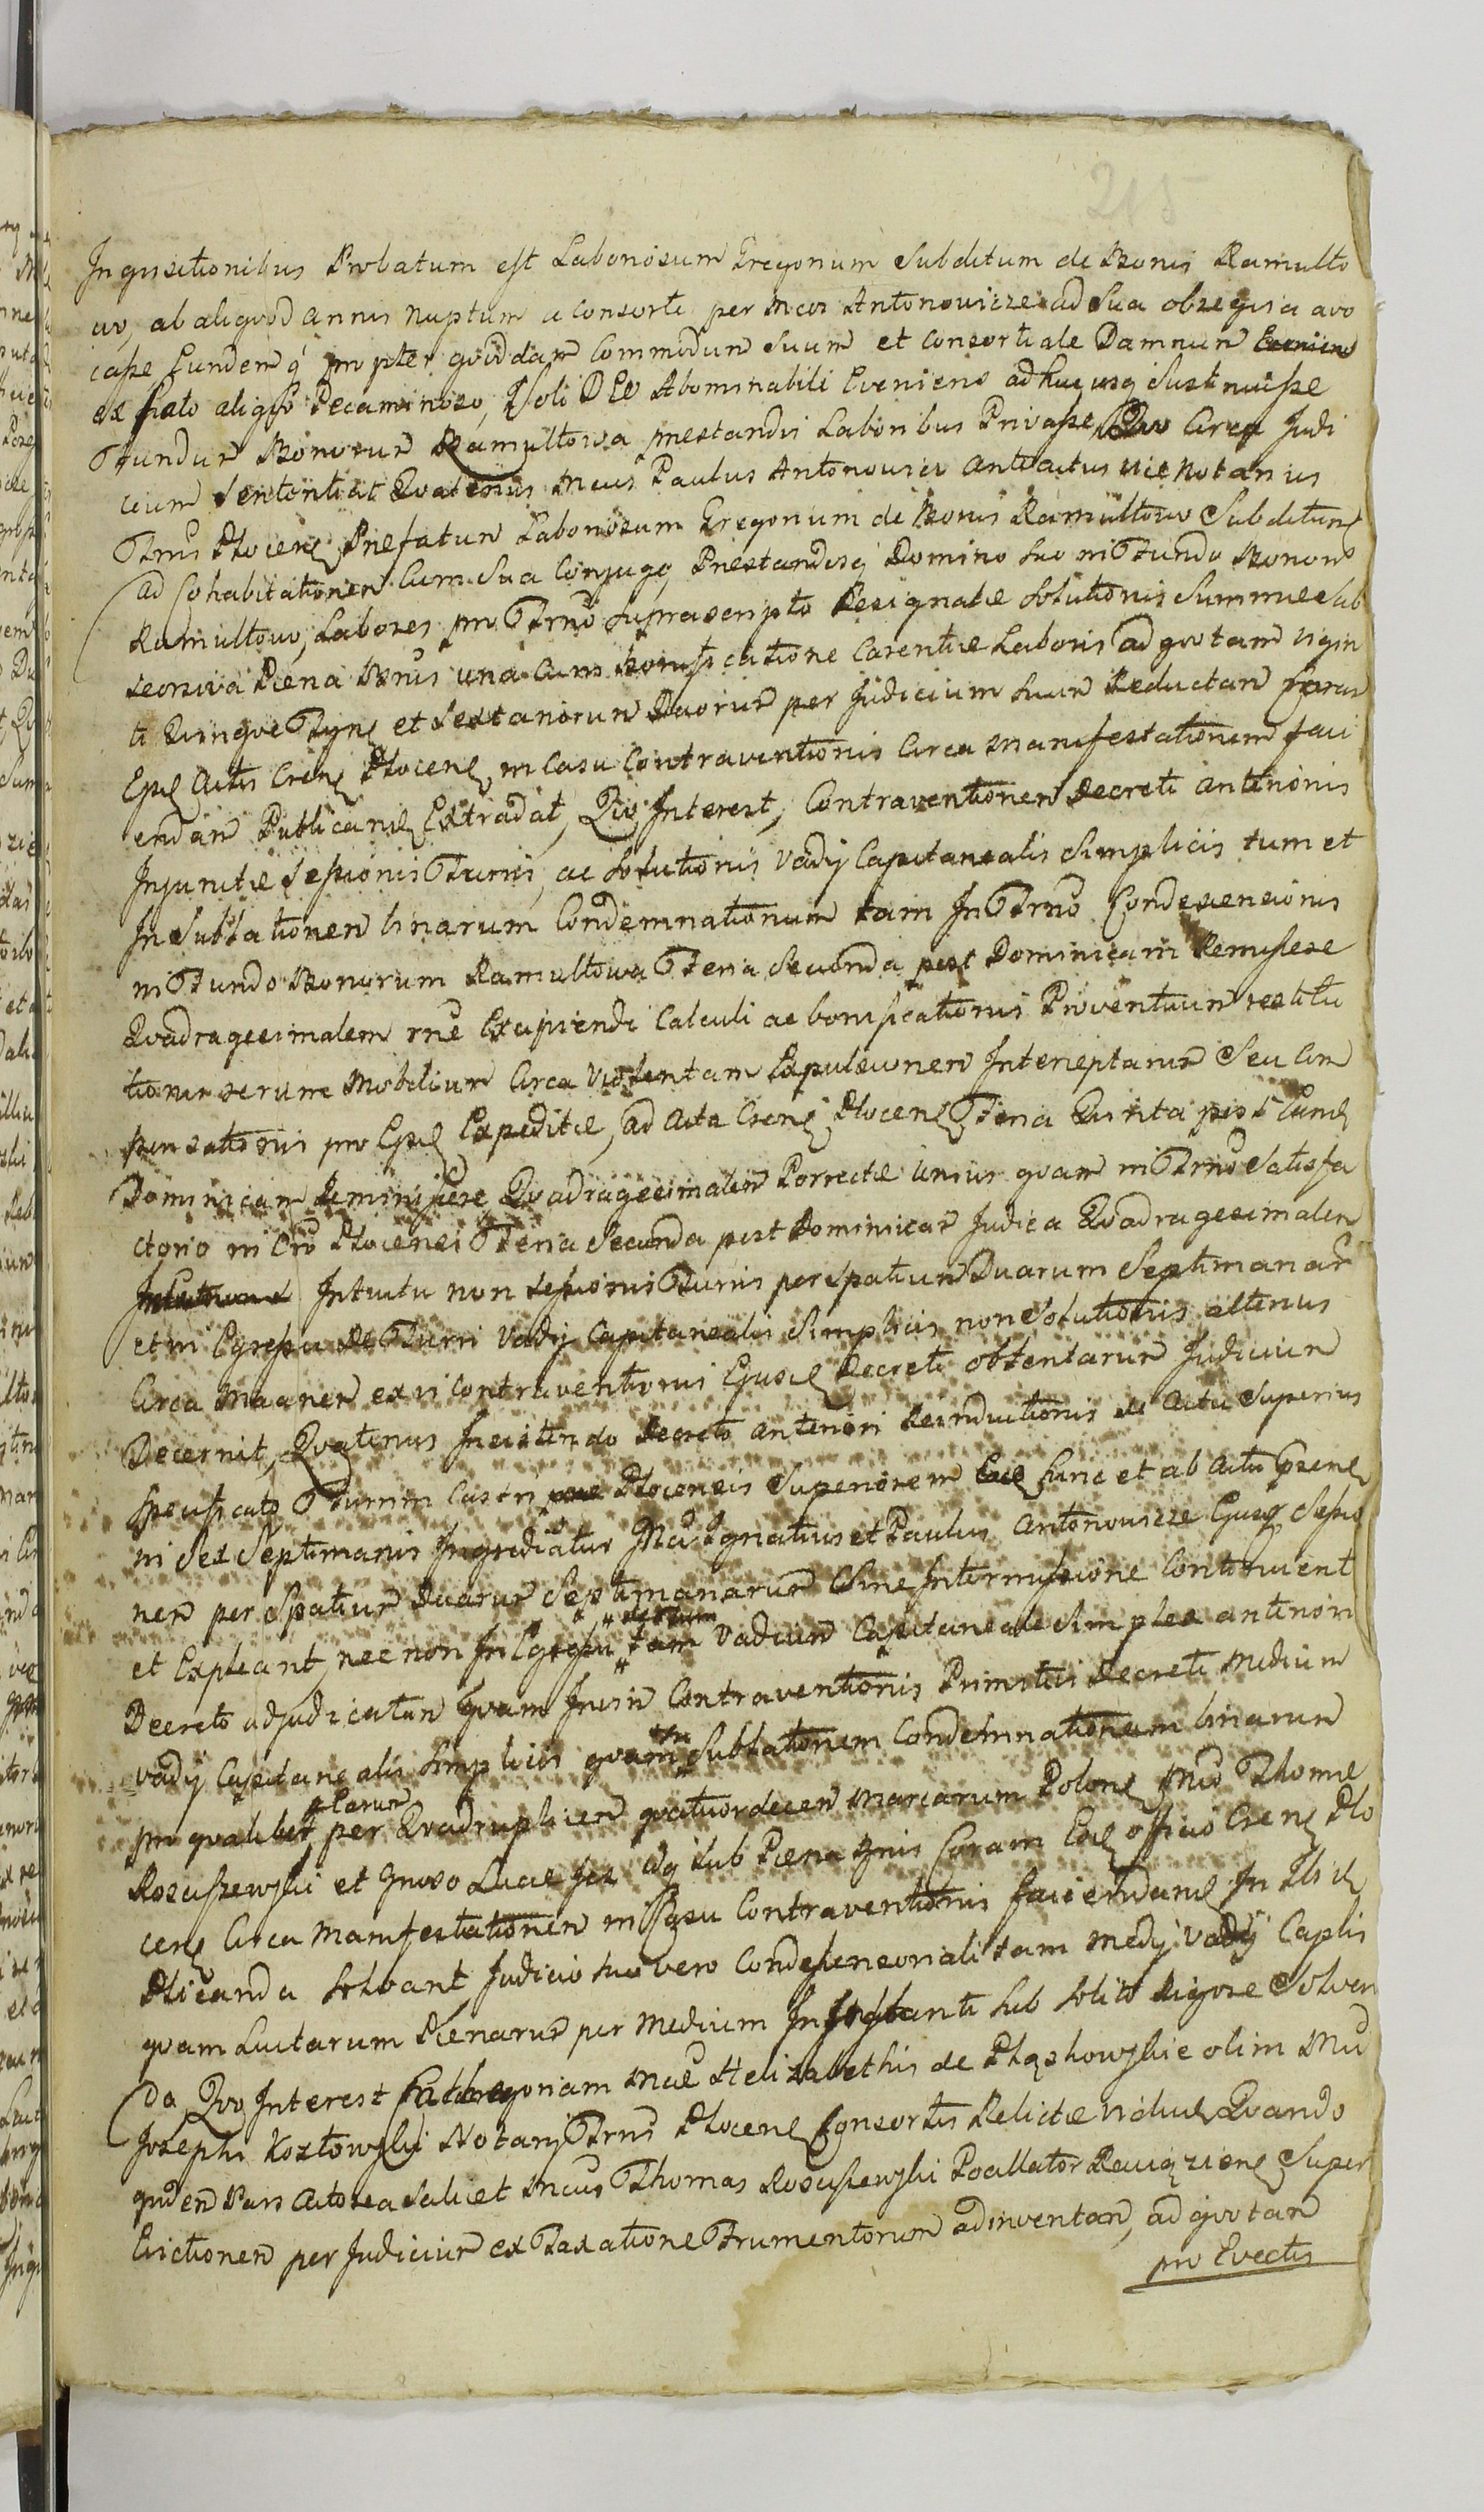 215
Inquisitionibus Probatum est Laboriosum Gregorium Subditum de Bonis Ramułto
wo, ab aliqvod annis nuptum a Consorte per Mcos Antonowicze ad Sua obsequia avo
casse Eundemq propter qvoddam Commodum Suum et Consortiale Damnum
ex facto aliqvo Pecaminoso, Soli DEO Abominabili Eveniens adhucusq Sustinuisse
Fundum Bonorum Ramułtowa prestandis Laboribus Privasse, Qvo Circa Judi
cium Sententiat Qvatenus Mcus Paulus Antonowicz anteactus vice Notarius
Trris Plocens Prefatum Laboriosum Gregorium de Bonis Ramułtowo Subditum
ad Cohabitationem Cum Sua Conjuge, Prestandosq Domino Suo in Fundo Bonorum
Ramułtowo, Labores pro Trno Suprascripto Resignatæ Solutionis Summæ Sub
seorsiva Pæna Bnis una Cum Bonificatione Carentiæ Laboris ad qvotam vigin
ti Qvinqve Tynf et Sextariorum Duorum per Judicium Suum Reductam Coram
Eisd Actis Crens Plocens, in Casu Contraventionis Circa Manifestationem faci
endam Publicans Extradat, Qvo Interest, Contraventionem Decreti anterioris
Injunctæ Sessionis Turris, ac Solutionis Vadij Capitanealis Simplicis tum et
In Sublationem binarum Condemnationum tam In Trno Condescensionis
in Fundo Bonorum Ramułtowa Feria Secunda post Dominicam Reminiscere
Qvadragesimalem rne Excipiendi Calculi ac bonificationis Proventuum restitu
tionis rerum Mobilium Circa Violentam Expulsionem Interceptarum Seu Com
pensationis pro Eisd Expeditæ, ad Acta Crens Plocens Feria Qvinta post Eand
Dominicam Reminiscere Qvadragesimalem Porrectæ unius qvam in Trno Satisfa
ctorio in Cro Plocensi Feria Secunda post Dominicam Judica Qvadragesimalem
Intuitu non Sessionis Turris per Spatium Duarum Septimanar
et in Egressu de Turri Vadij Capitanealis Simplicis non Solutionis alterius
Circa Maanen ex vi Contraventionis Ejusd Decreti obtentarum Judicium
Decernit, Qvatenus Insistendo Decreto anteriori Reinductionis de Actu Superius
Specificato Turrim Castri Plocensis Superiorem hinc et ab Actu Prsenti
in Sex Septimanis Ingrediatur Mci Ignatius et Paulus Antonowicze Ejusq Sessio
nem per Spatium Duarum Septimanarum Sine Intermissione Continuent
et Expleant, nec non In Egressu de Turri tam Vadium Capitaneale Simplex anteriori
Decreto adjudicatum qvam In vim Contraventionis Primitui Decreti Medium
Vadij Capitanealis Simplicis qvam In Sublationem Condemnationum binarum
pro qvalibet Earum per Qvadruplicem qvatuordecem Marcarum Polons Mco Thomæ
Roscissewski et Gnroso Lucæ Idq Sub Pæna Bnis Coram Eod officio Crens Plo
cens Circa Manifestationem in Casu Contraventionis faciendams In Ibid
Plicanda Solvant, Judicio Suo vero Condescensoriali tam Medij Vadij Caplis
qvam Luctarum Pænarum per Medium In Instanti Sub Solito Rigore Solven
Da, Qvo Interest Cathegoriam Mcæ Helizabethis de Pląskowskie olim Mci
Josephi Kozłowski Notarij Trris Plocens Consortis Relictæ viduæ, Qvando
qvidem Pars Actorea Scilicet Mcus Thomas Roscissewski Pocillator Raviąziens Super
Evictionem per Judicium ex Taxatione Frumentorum adinventam, ad qvotam
pro Evectis